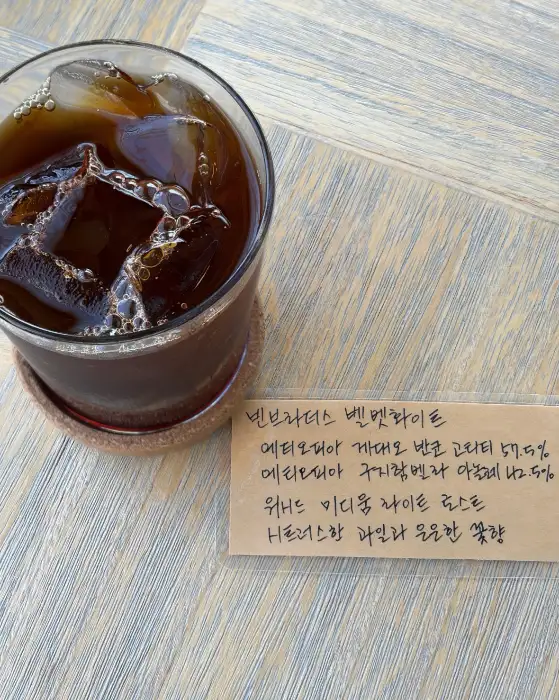 빈브라더스 벨벳화이트
에티오피아 게대오 반코 고티티 57.5%
에티오피아 구지함벨라 아눅레 42.5%
워시드 미디움 라이트 로스트
시트러스한 과일과 은은한 꽃향